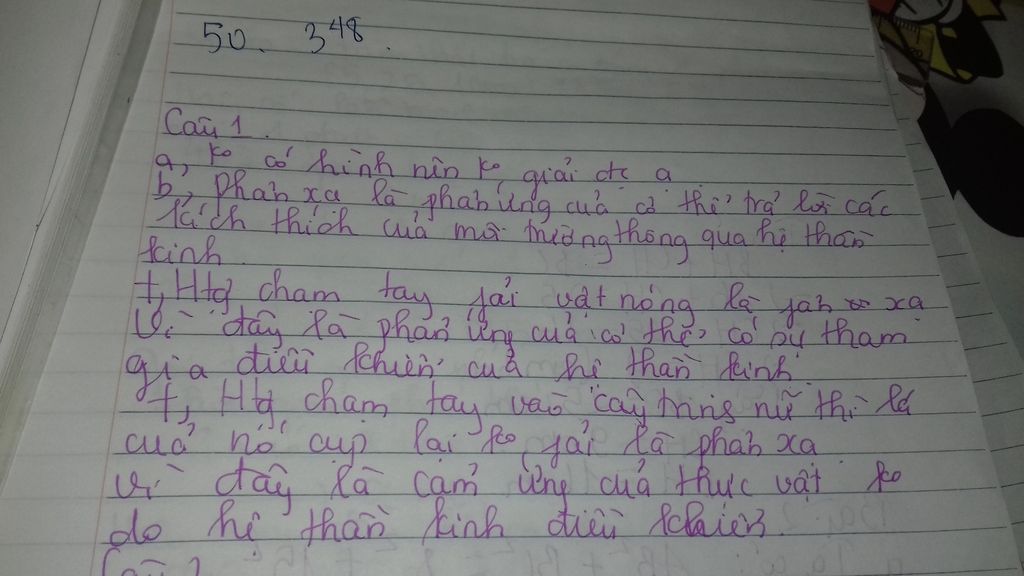 50. 3⁴⁸.
Câu 1.
a, ko có hình nên ko giải đc a
b, phản xạ là phản ứng của cơ thể trả lời các
kích thích của môi trường thông qua hệ thần
kinh
+, Htg chạm tay fải vật nóng là fản xạ
Vì đây là phản ứng của cơ thể, có sự tham
gia điều khiển của hệ thần kinh
+, Htg chạm tay vào cây trinh nữ thì lá
của nó cụp lại ko fải là phản xạ
vì đây là cảm ứng của thực vật ko
do hệ thần kinh điều khiển.